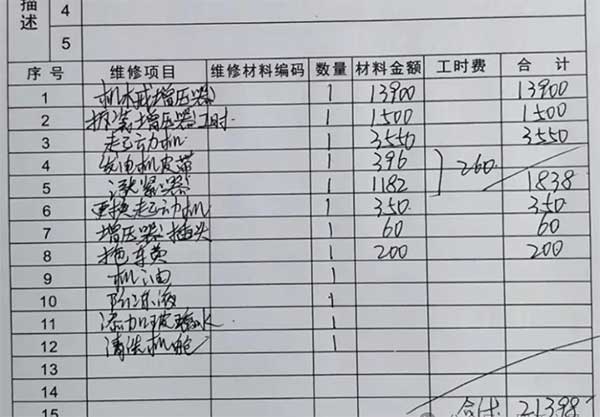 描述
4
5
序号 维修项目 维修材料编码 数量 材料金额 工时费 合计
1 机械增压器 1 13900 13900
2 拆装增压器工时 1 1500 1500
3 起动机 1 3550 3550
4 发电机皮带 1 396 260
5 涨紧器 1 1182 1838
6 更换起动机 1 350 350
7 增压器插头 1 60 60
8 拖车费 1 200 200
9 机油 1
10 防冻液 1
11 添加玻璃水 1
12 清洗机舱 1
13
14
15 合计 21398